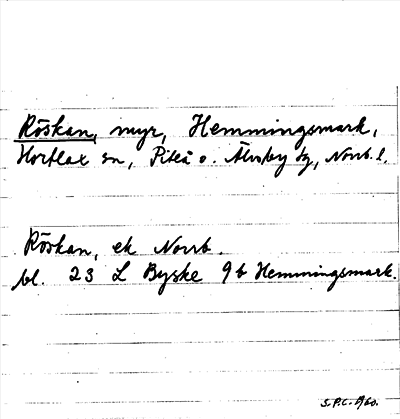 Röskan, myr, Hemmingsmark,
Hortlax sn, Piteå o. Älvsby tg, Norrb. l.
Röskan, ek Norrb.
bl. 23 L Byske 9 b Hemmingsmark.
S.P.C. 1960.